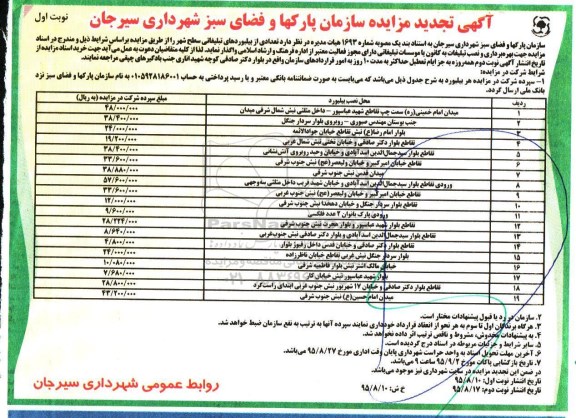 نوبت اول
آگهی تجدید مزایده سازمان پارکها و فضای سبز شهرداری سیرجان
سازمان پارکها و فضای سبز شهرداری سیرجان به استناد بند یک مصوبه شماره ۱۶۹۳ هیات مدیره در نظر دارد تعدادی از بیلبوردهای تبلیغاتی سطح شهر را از طریق مزایده براساس شرایط ذیل و مندرج در اسناد
مزایده جهت بهره‌برداری و نصب تبلیغات به کانون یا موسسات تبلیغاتی دارای مجوز فعالیت معتبر از اداره فرهنگ و ارشاد اسلامی واگذار نماید. لذا از کلیه متقاضیان دعوت به عمل می‌آید جهت خرید اسناد مزایده از
تاریخ انتشار آگهی نوبت دوم همه‌روزه به جز ایام تعطیل حداکثر به مدت ۱۰ روز به امور قراردادهای سازمان واقع در بلوار دکتر صادقی کوچه شهید اناری جنب یادگیرهای چیقی مراجعه نمایند.
شرایط شرکت در مزایده:
۱- سپرده شرکت در مزایده هر بیلبورد به شرح جدول ذیل می‌باشد که می‌بایست به صورت ضمانتنامه بانکی معتبر و یا رسید پرداختی به حساب ۰۱۰۵۹۲۸۱۸۶۰۰۱ به نام سازمان پارکها و فضای سبز نزد
بانک ملی ارسال گردد.
ردیف محل نصب بیلبورد مبلغ سپرده شرکت در مزایده (به ریال)
۱ میدان امام خمینی(ره) سمت چپ تقاطع شهید عباسپور - داخل مثلثی نبش شمال شرقی میدان ۴۸/۰۰۰/۰۰۰
۲ جنب بوستان مهندس صبوری - روبروی بلوار سردار جنگل ۳۸/۴۰۰/۰۰۰
۳ بلوار امام رضا(ع) نبش تقاطع خیابان جوادالائمه ۲۴/۰۰۰/۰۰۰
۴ تقاطع بلوار دکتر صادقی و خیابان تختی نبش شمال غربی ۱۹/۲۰۰/۰۰۰
۵ تقاطع بلوار سیدجمال‌الدین اسدآبادی و خیابان وحید روبروی آتش‌نشانی ۳۸/۴۰۰/۰۰۰
۶ تقاطع خیابان امیرکبیر و خیابان ولیعصر(عج) نبش جنوب شرقی ۳۳/۶۰۰/۰۰۰
۷ میدان قدس نبش جنوب شرقی ۳۸/۸۸۰/۰۰۰
۸ ورودی تقاطع بلوار سیدجمال‌الدین اسدآبادی و خیابان شهید غریب داخل مثلثی سه‌وجهی ۵۷/۶۰۰/۰۰۰
۹ تقاطع خیابان امیرکبیر و خیابان ولیعصر(عج) نبش جنوب غربی ۳۳/۶۰۰/۰۰۰
۱۰ تقاطع بلوار سردار جنگل و خیابان دهخدا نبش جنوب شرقی ۱۲/۰۰۰/۰۰۰
۱۱ ورودی پارک بانوان ۲ عدد فلکسی ۹/۶۰۰/۰۰۰
۱۲ تقاطع بلوار شهید عباسپور و بلوار هجرت نبش جنوب شرقی ۲۸/۲۲۴/۰۰۰
۱۳ تقاطع بلوار سیدجمال‌الدین اسدآبادی و بلوار دکتر صادقی نبش جنوب‌غربی ۸/۶۴۰/۰۰۰
۱۴ تقاطع بلوار دکتر صادقی و خیابان قدس داخل رفیوژ بلوار ۴/۸۰۰/۰۰۰
۱۵ بلوار سردار جنگل نبش غربی تقاطع خیابان ناظرزاده ۲۴/۰۰۰/۰۰۰
۱۶ خیابان مالک اشتر نبش بلوار فاطمیه شرقی ۱۰/۰۸۰/۰۰۰
۱۷ بلوار شهید عباسپور نبش خیابان کار ۷/۶۸۰/۰۰۰
۱۸ تقاطع بلوار دکتر صادقی و خیابان ۱۷ شهریور نبش جنوب غربی ابتدای راست‌گرد ۲۸/۸۰۰/۰۰۰
۱۹ میدان امام حسین(ع) نبش جنوب شرقی ۴۳/۲۰۰/۰۰۰
۲. سازمان در رد یا قبول پیشنهادات مختار است.
۳. هرگاه برندگان اول تا سوم به هر نحو از انعقاد قرارداد خودداری نمایند سپرده آنها به ترتیب به نفع سازمان ضبط خواهد شد.
۴. به پیشنهادات مخدوش، مشروط و ناقص ترتیب اثر داده نخواهد شد.
۵. سایر شرایط و جزئیات مربوطه در اسناد درج گردیده است.
۶. آخرین مهلت تحویل اسناد به واحد حراست شهرداری پایان وقت اداری مورخ ۹۵/۸/۲۷ می‌باشد.
۷. تاریخ بازگشایی پاکات مورخ ۹۵/۹/۲ ساعت ۹ می‌باشد.
در ضمن این تجدید مزایده در سایت شهرداری نیز موجود می‌باشد.
تاریخ انتشار نوبت اول: ۹۵/۸/۱۰
تاریخ انتشار نوبت دوم: ۹۵/۸/۱۷ خ ش: ۹۵/۸/۱۰
روابط عمومی شهرداری سیرجان